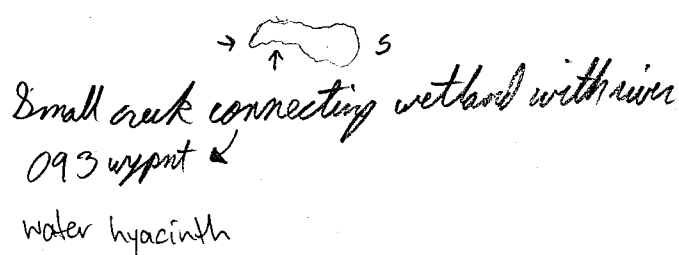 S
Small creek connecting wetland with river
093 wypnt
water hyacinth